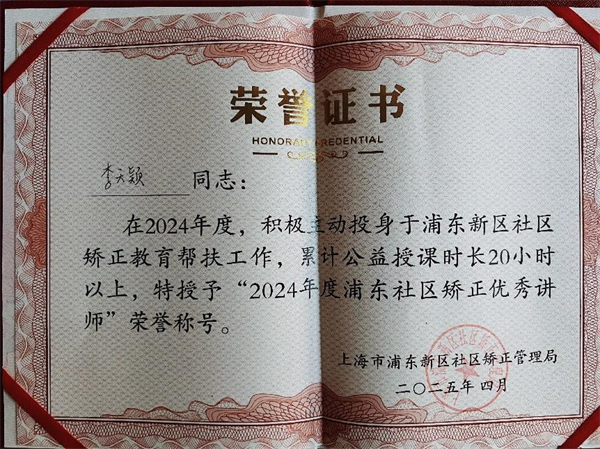 荣誉证书
HONORARY CREDENTIAL
李天颖 同志：
在2024年度，积极主动投身于浦东新区社区
矫正教育帮扶工作，累计公益授课时长20小时
以上，特授予“2024年度浦东社区矫正优秀讲
师”荣誉称号。
上海市浦东新区社区矫正管理局
二〇二五年 四月